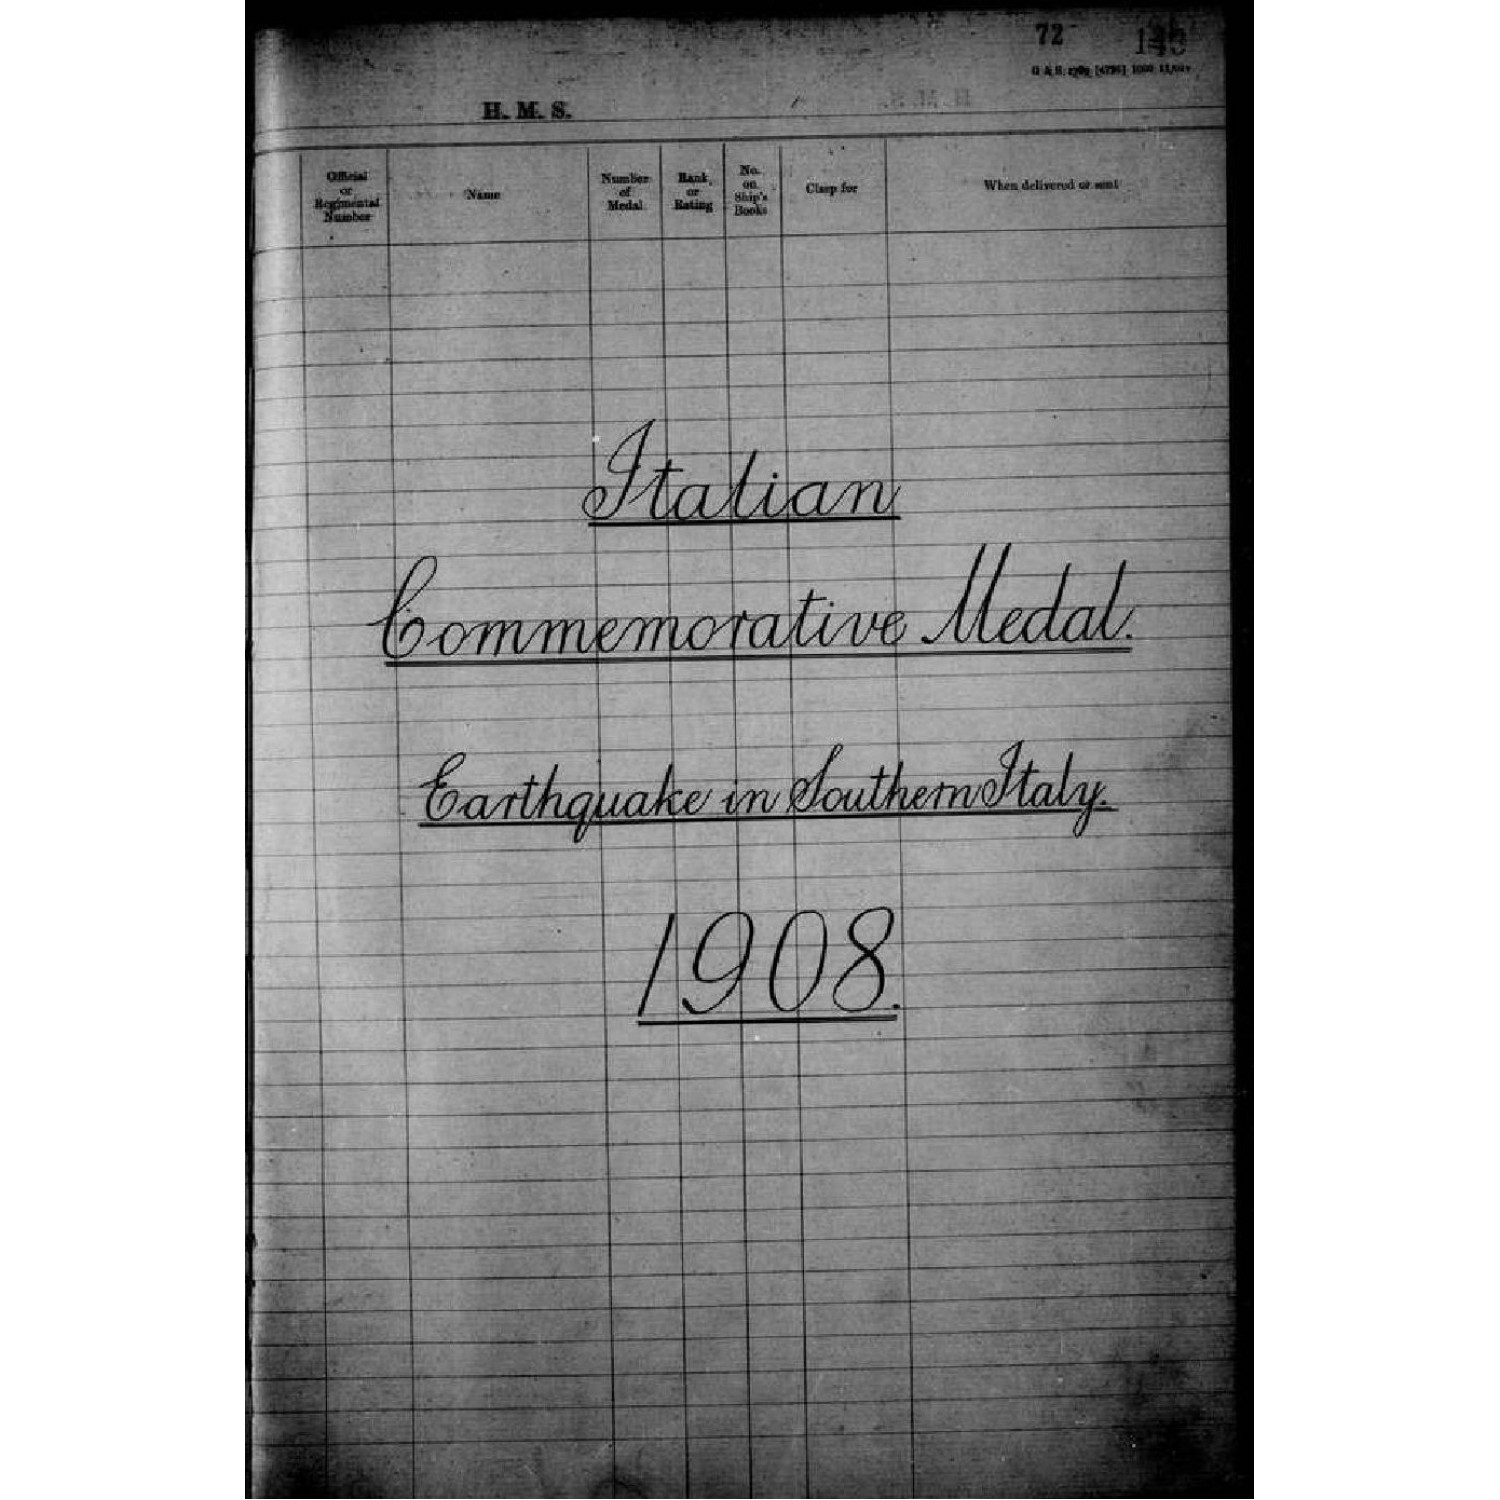 72
H. M. S.
Official or Regimental Number
Name
Number of Medal
Rank or Rating
No. on Ship's Books
Clasp for
When delivered or sent
Italian
Commemorative Medal.
Earthquake in Southern Italy.
1908.